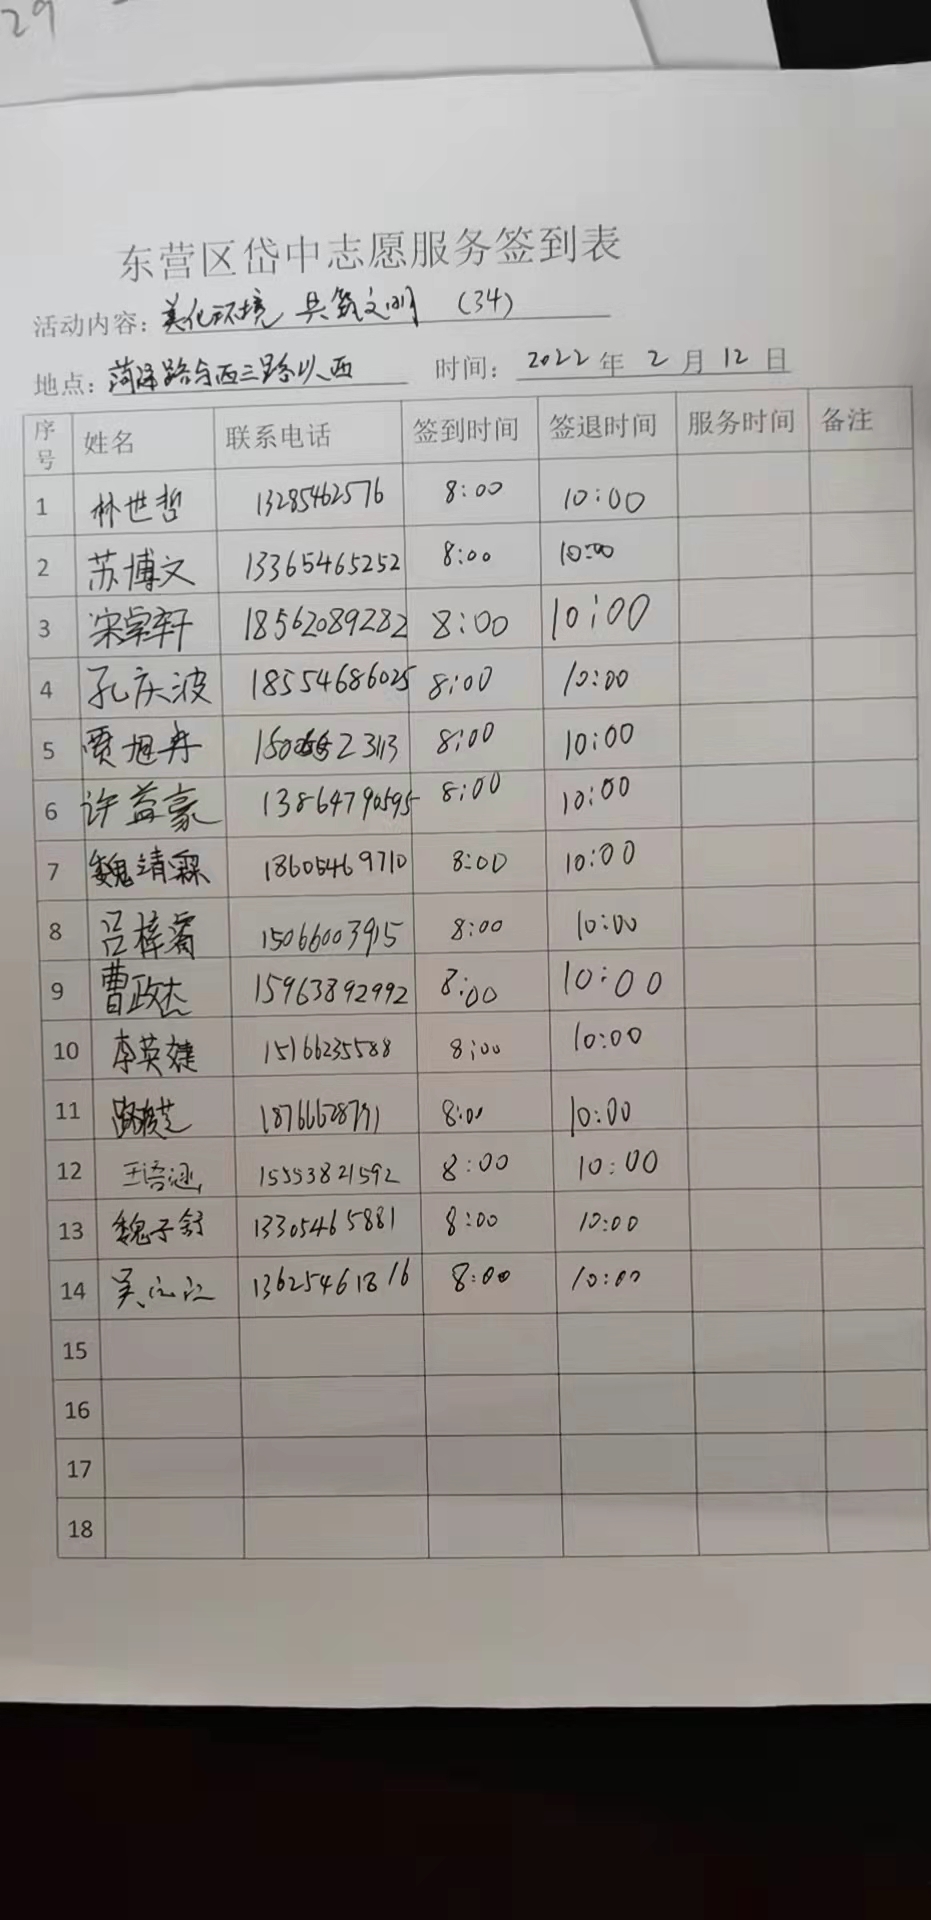 29
东营区岱中志愿服务签到表
活动内容：美化环境 共筑文明 （34）
地点：菏泽路与西三路以西 时间：2022年2月12日
序号 姓名 联系电话 签到时间 签退时间 服务时间 备注
1 林世哲 13285462576 8:00 10:00
2 苏博文 13365465252 8:00 10:00
3 宋卓轩 18562089282 8:00 10:00
4 孔庆波 18554686025 8:00 10:00
5 贾旭冉 8:00 10:00
6 许益豪 13864790595 8:00 10:00
7 魏靖霖 18605469710 8:00 10:00
8 吕梓睿 15066003915 8:00 10:00
9 曹政杰 15963892992 8:00 10:00
10 李英婕 15166235588 8:00 10:00
11 8:00 10:00
12 王语涵 15553821592 8:00 10:00
13 魏子舒 13305465881 8:00 10:00
14 吴 13625461816 8:00 10:00
15
16
17
18